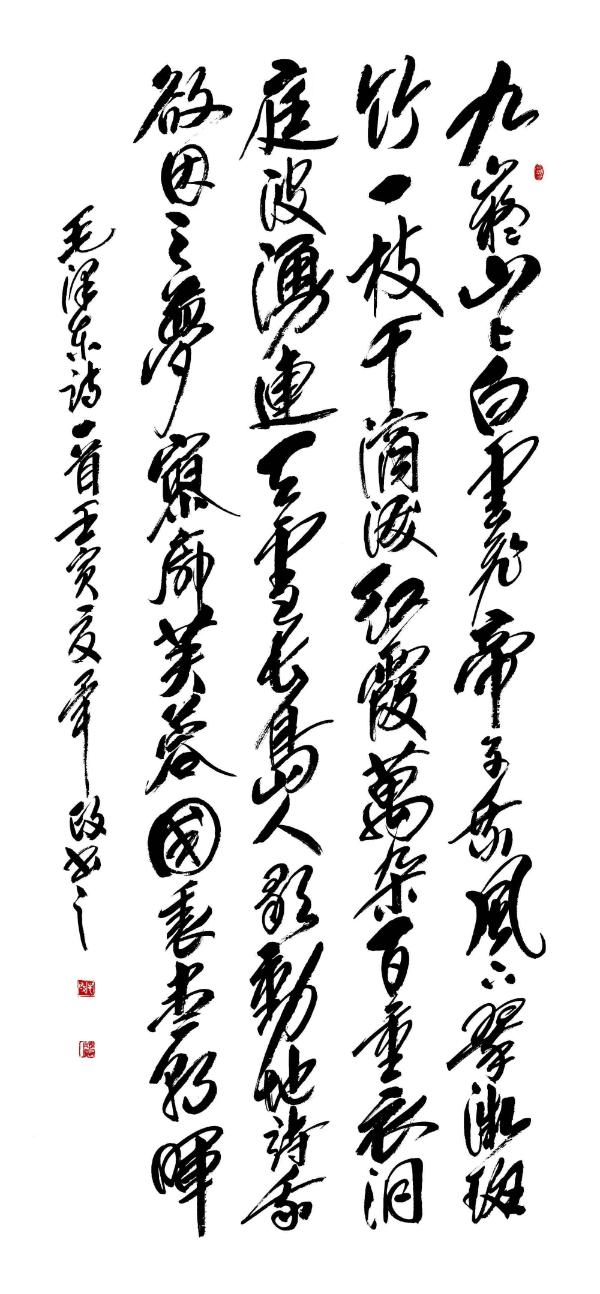 九嶷山上白雲飛帝子乘風下翠微斑
竹一枝千滴淚紅霞萬朵百重衣洞
庭波湧連天雪長島人歌動地詩我
欲因之夢寥廓芙蓉國裏盡朝暉
毛泽东诗一首壬寅夏政书之